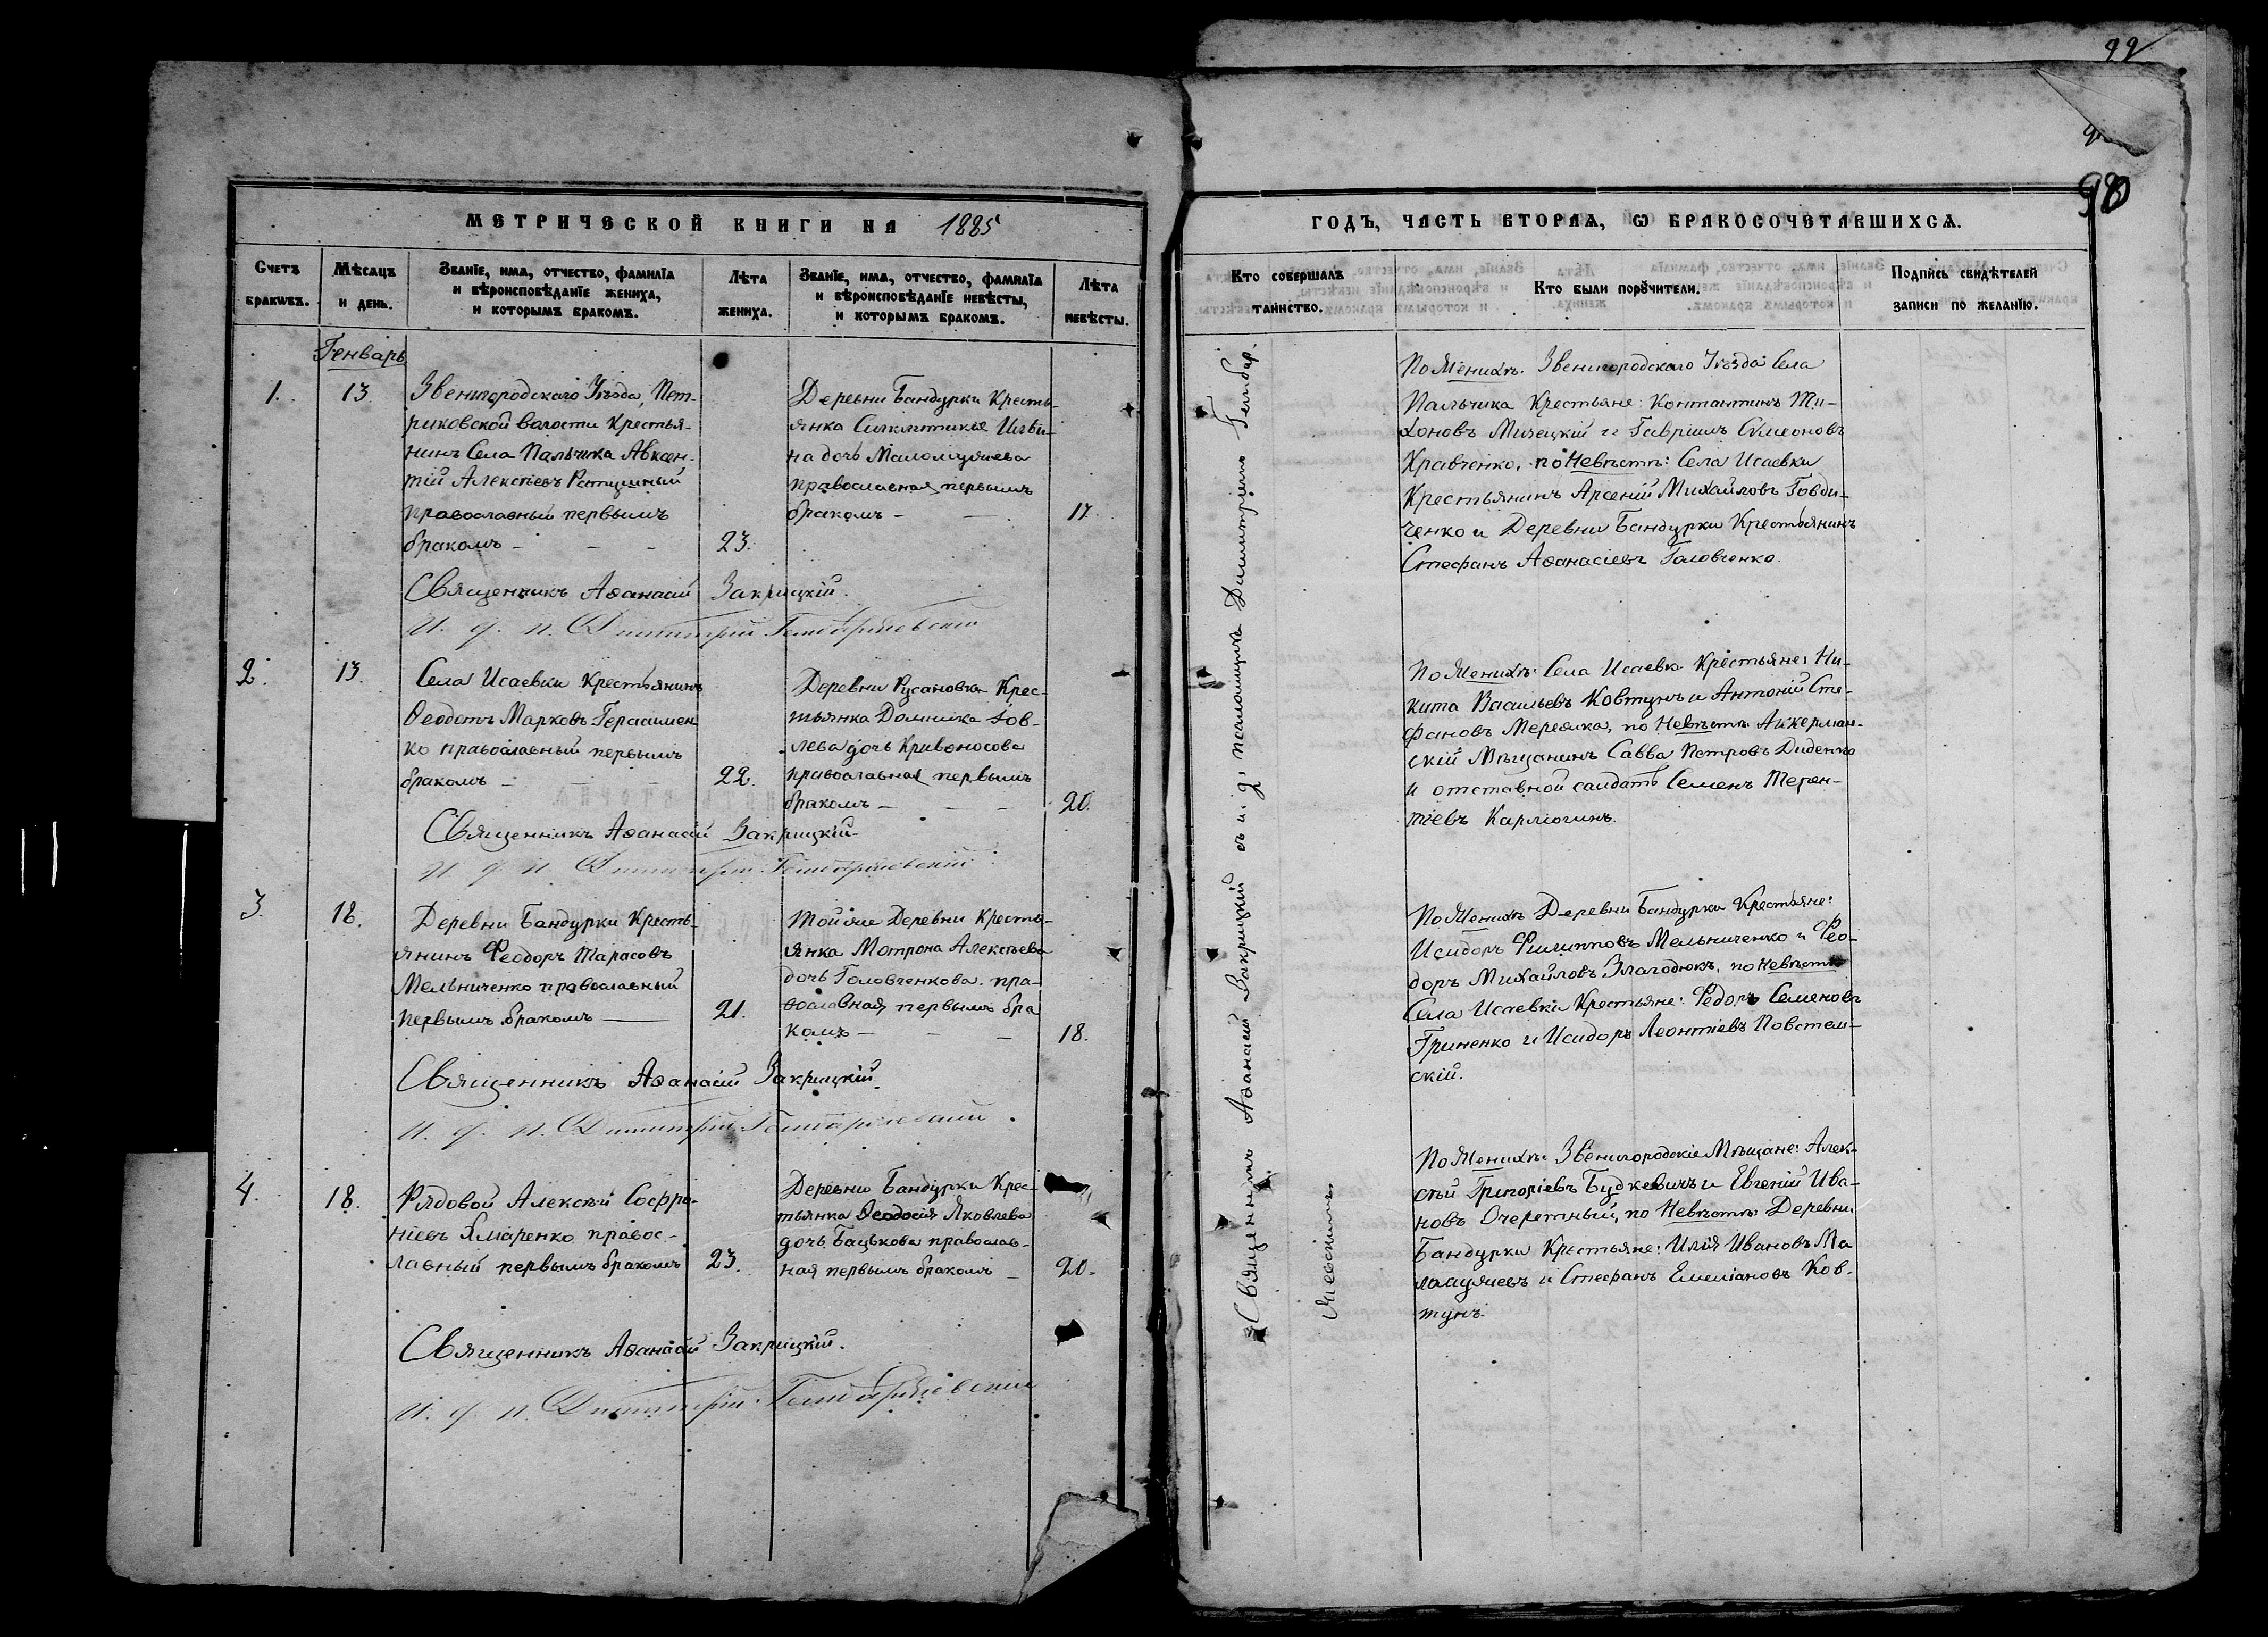 99
98
МЕТРИЧЕСКОЙ КНИГИ НА 1885
Счетъ браковъ.
Мѣсяцъ и день.
Званїе, имя, отчество, фамилїа
и вѣроисповѣданїе жениха,
и которымъ бракомъ.
Лѣта
жениха.
Званїе, имя, отчество, фамилїа
и вѣроисповѣданїе невѣсты,
и которымъ бракомъ.
Лѣта
невѣсты.
Генварь
1. 13.
Звенигородскаго Уѣзда, Пет-
риковской волости Крестья-
нинъ Села Пальчика Авксен-
тій Алексѣевъ
православный первымъ
бракомъ - - - 23.
Деревни Бандурки Кресть-
янка
на дочь
православная первымъ
бракомъ - - 17.
Священникъ Аѳанасій Закрицкій.
И. д. п. Димитрій
2. 13.
Села Исаевки Крестьянинъ
Ѳеодотъ Марковъ Герасимен
ко православный первымъ
бракомъ - - - 22.
Деревни Русановки Крес-
тьянка Домника Іов-
лева дочь Кривоносова
православная первымъ
бракомъ - - - 20.
Священникъ Аѳанасій Закрицкій
И. д. п. Димитрій
3. 18.
Деревни Бандурки Кресть-
янинъ Феодоръ Тарасовъ
Мельниченко православный
первымъ бракомъ — 21.
Тойже Деревни Кресть-
янка Мотрона Алексѣева
дочь Головченкова пра-
вославная первымъ бра
комъ - - - 18.
Священникъ Аѳанасій Закрицкій.
И. д. п. Димитрій
4. 18.
Рядовой Алексѣй Софро-
ніевъ Ямаренко правос-
лавный первымъ бракомъ 23.
Деревни Бандурки Крес-
тьянка Ѳеодосія Яковлева
дочь Бацькова православ-
ная первымъ бракомъ - 20.
Священникъ Аѳанасій Закрицкій.
И. д. п. Димитрій
ГОДЪ, ЧАСТЬ ВТОРАЯ, Ѡ БРАКОСОЧЕТАВШИХСЯ.
Кто совершалъ
таинство.
Кто были порꙋчители.
Подпись свидѣтелей
записи по желанїю.
Священникъ Аѳанасій Закрицкій съ и. д. псаломщика Димитріемъ
По Женихѣ: Звенигородскаго Уѣзда Села
Пальчика Крестьяне: Константинъ Ти-
хоновъ Мизецкій и Гавріилъ Сѵмеоновъ
Кравченко, по Невѣстѣ: Села Исаевки
Крестьянинъ Арсеній Михайловъ Говди-
ченко и Деревни Бандурки Крестьянинъ
Стефанъ Аѳанасіевъ Головченко.
По Женихѣ: Села Исаевки Крестьяне: Ни-
кита Васильевъ Ковтунъ и Антоній Сте-
фановъ Мережка, по Невѣстѣ Аккерман-
скій Мѣщанинъ Савва Петровъ Диденко
и отставной салдатъ Семенъ Терен-
тіевъ Карпюгинъ.
По Женихѣ Деревни Бандурки Крестьяне:
Исидоръ Филипповъ Мельниченко и Фео-
доръ Михайловъ Злагодюкъ, по Невѣстѣ
Села Исаевки Крестьяне: Федоръ Семеновъ
Гриненко и Исидоръ Леонтіевъ Повстян-
скій.
По Женихѣ: Звенигородскіе Мѣщане: Алек-
сѣй Григоріевъ Будкевичъ и Евгеній Ива-
новъ Очеретный, по Невѣстѣ: Деревни
Бандурки Крестьяне: Илія Ивановъ Ма
и Стефанъ Емеліановъ Ков-
тунъ.